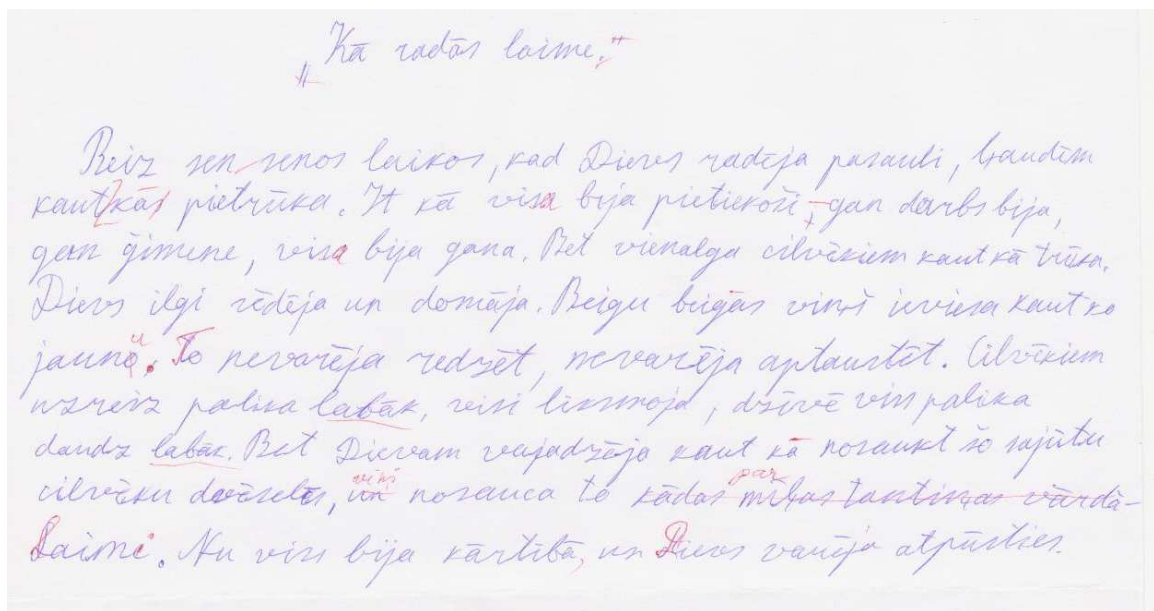 „Kā radās laime."
Reiz sen senos laikos, kad Dievs radēja pasauli, ļaudīm
kaut kās pietrūka. It kā visa bija pietiekoši, gan darbs bija,
gan ģimene, visa bija gana. Bet vienalga cilvēkiem kaut kā trūka.
Dievs ilgi sēdēja un domāja. Beigu beigās viņš ieviesa kaut ko
jaunu. To nevarēja redzēt, nevarēja aptaustīt. Cilvēkiem
uzreiz palika labāk, visi līksmoja, dzīvē viss palika
daudz labāk. Bet Dievam vajadzēja kaut kā nosaukt šo sajūtu
cilvēku dvēselēs, viņš nosauca to par
kādas mīļas tantiņas vārdā-
Laimi. Nu viss bija kārtībā, un Dievs varēja atpūsties.